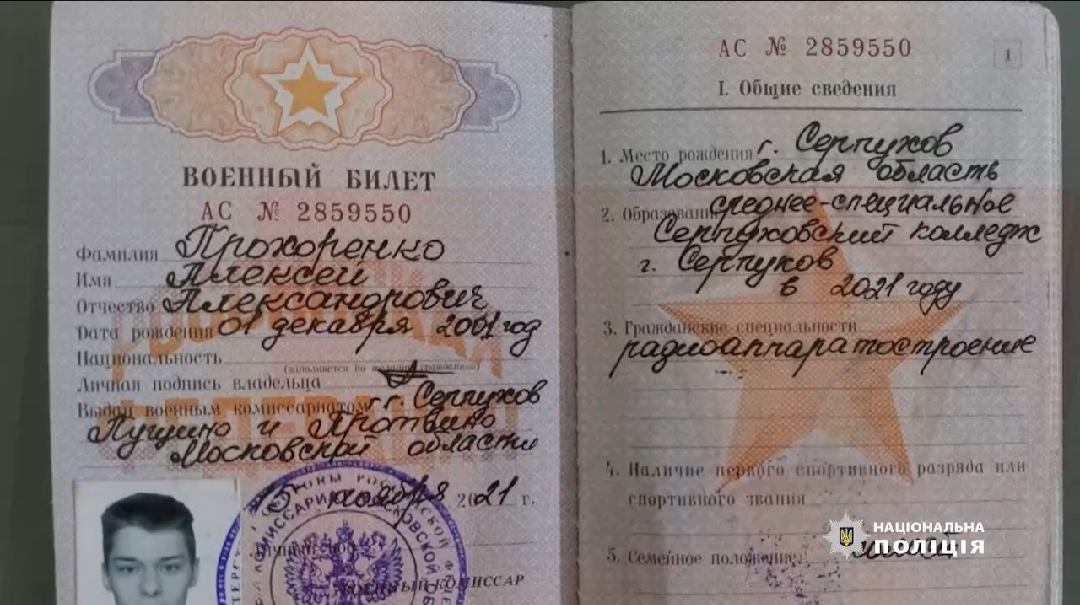 ВОЕННЫЙ БИЛЕТ
АС № 2859550
Фамилия Прохоренко
Имя Алексей
Отчество Александрович
Дата рождения 01 декабря 2001 год
Национальность
Личная подпись владельца
Выдан военным комиссариатом г. Серпухов
Пущино и Протвино
Московской области
ноября 2021 г.
КОМИССАР
АС № 2859550
1
I. Общие сведения
1. Место рождения г. Серпухов
Московская область
2. Образование среднее-специальное
Серпуховский колледж
г. Серпухов
в 2021 году
3. Гражданские специальности
радиоаппаратостроение
4. Наличие первого спортивного разряда или
спортивного звания
5. Семейное положение
НАЦІОНАЛЬНА
ПОЛІЦІЯ